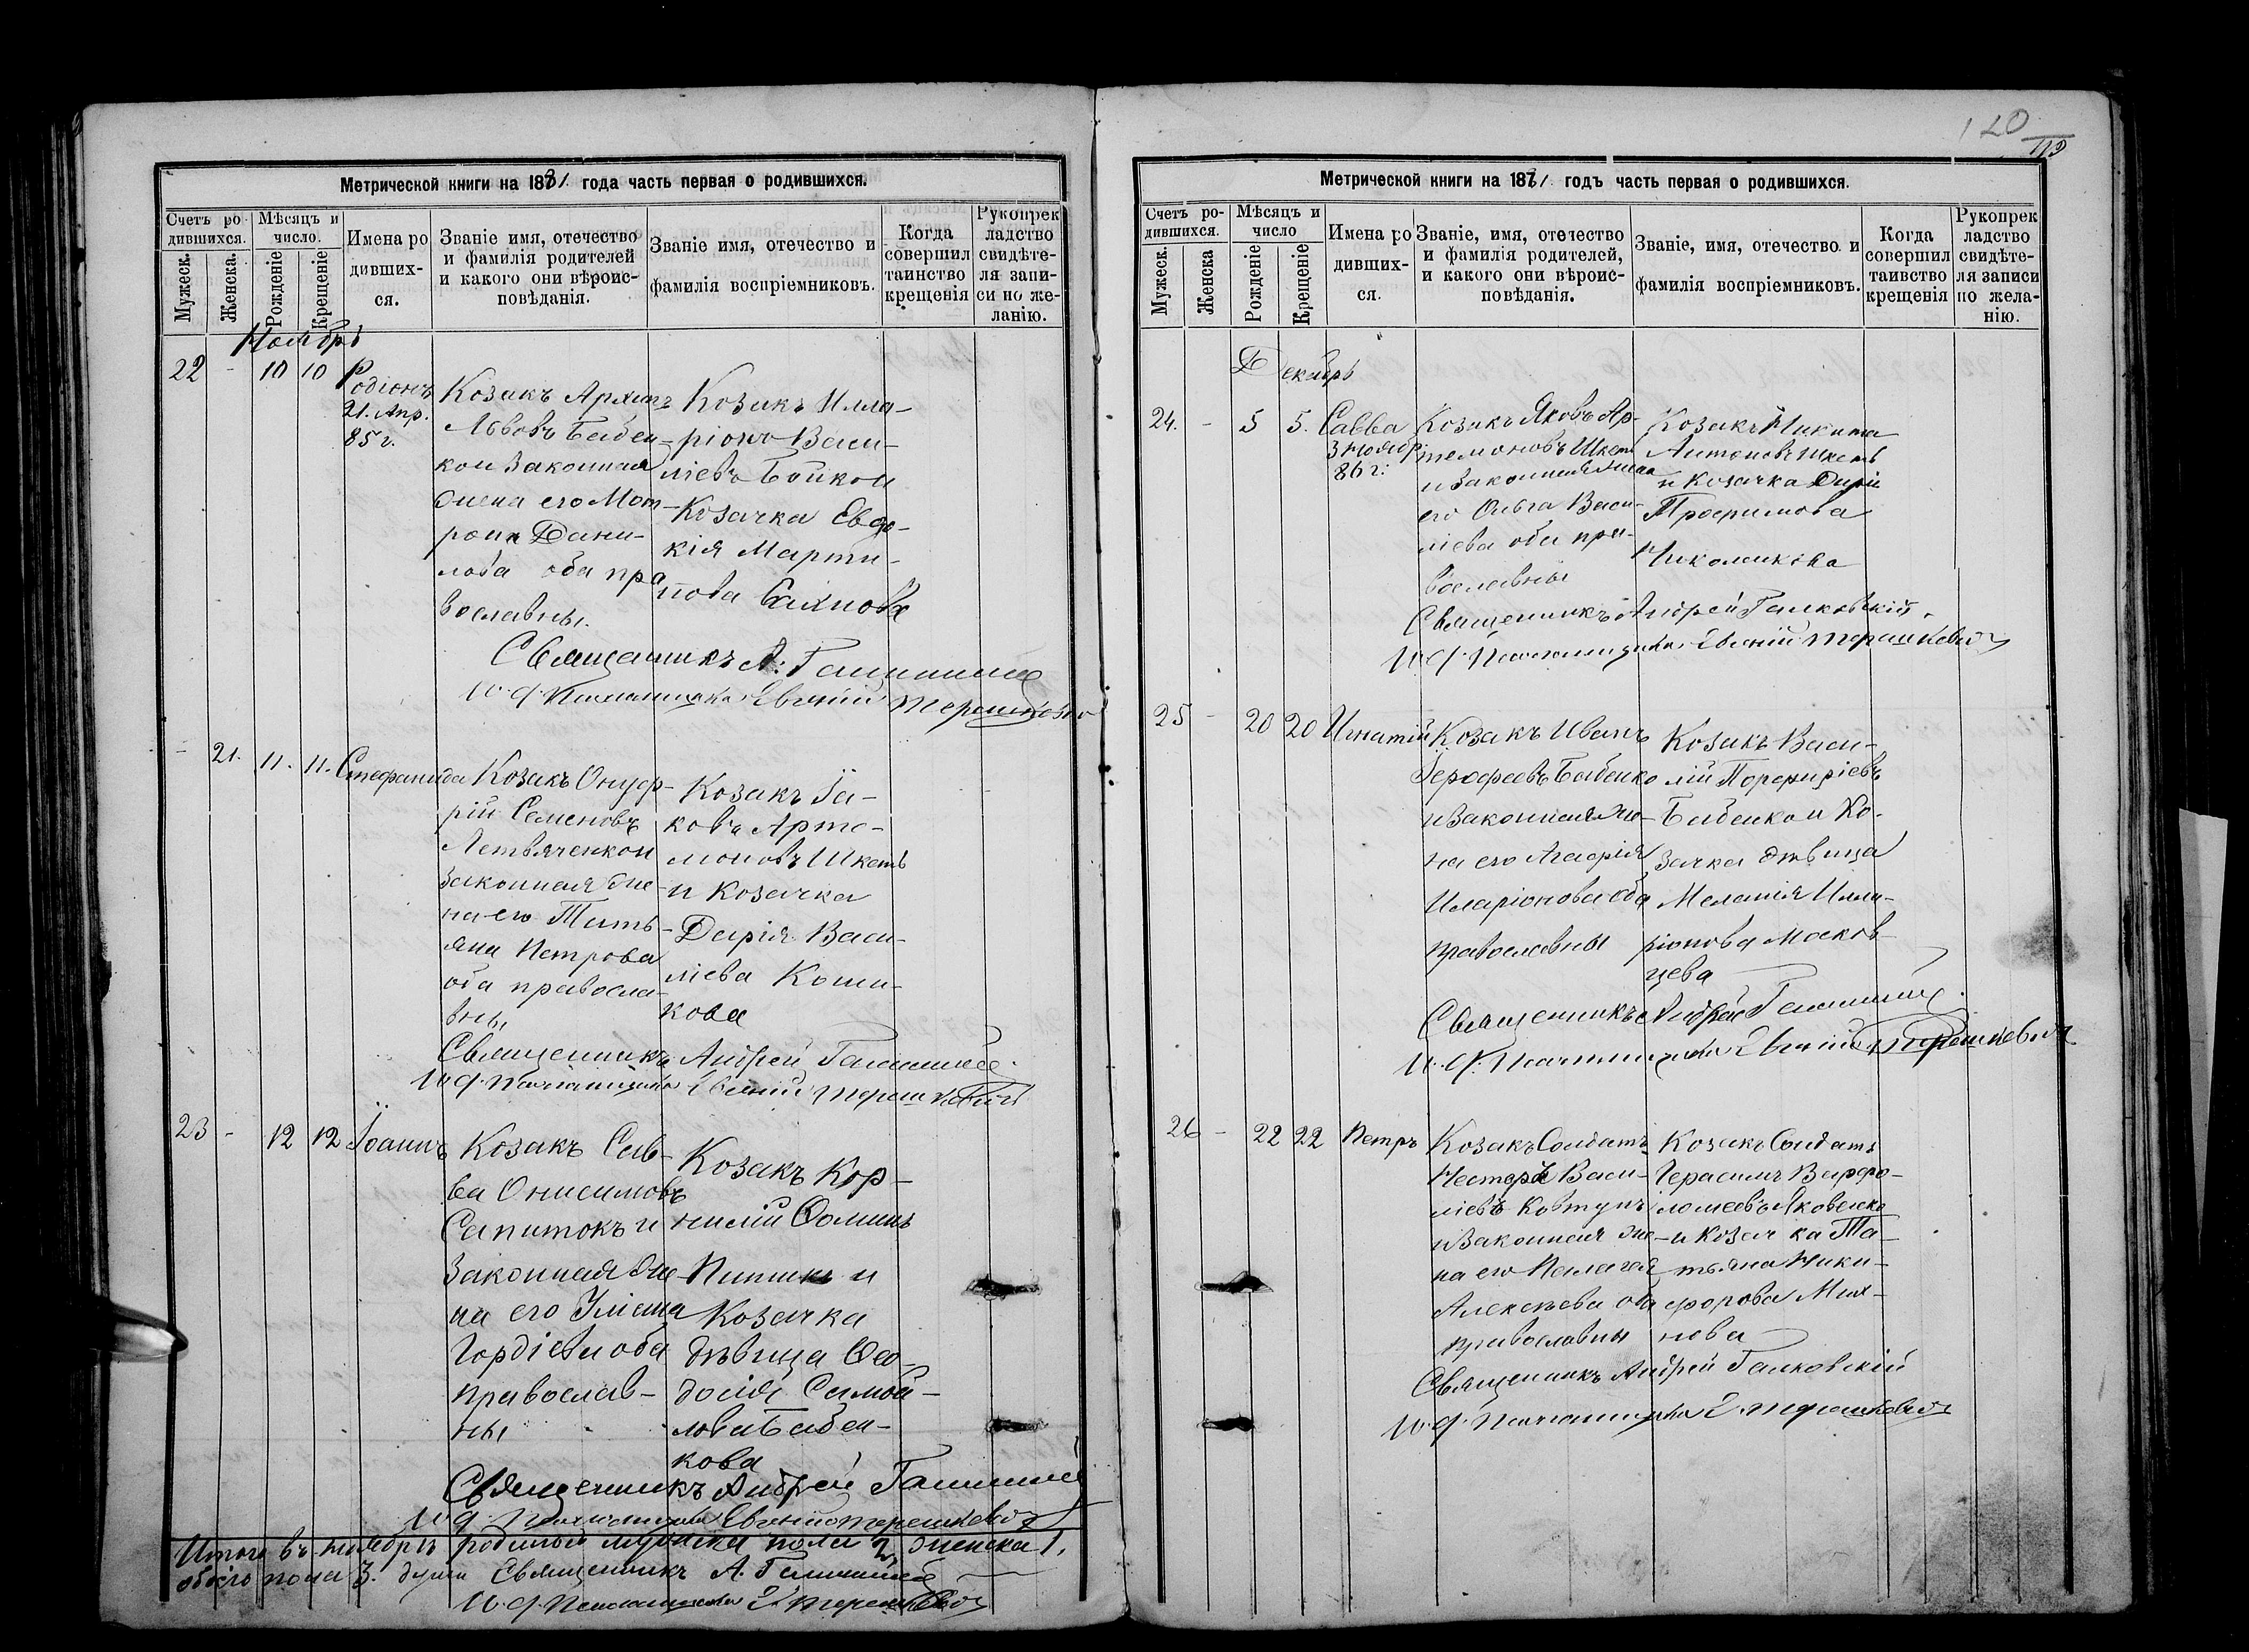 Метрической книги на 1871 года часть первая о родившихся.
Счетъ ро-
дившихся.
Мѣсяцъ и
число.
Мужеск.
Женска.
Рожденіе
Крещеніе
Имена ро
дивших-
ся.
Званіе имя, отечество
и фамилія родителей
и какого они вѣроис-
повѣданія.
Званіе имя, отечество и
фамилія воспріемниковъ.
Когда
совершил
таинство
крещенія
Рукопрек
ладство
свидѣте-
ля запи-
си по же-
ланію.
Ноябрь
22 - 10 10 Родіонъ
21. Апр.
85 г.
Козакъ Архипъ
Львовъ Бабен-
ко и законная
жена его Мот-
рона Дани-
лова оба пра
вославны.
Козакъ Илла-
ріонъ Васи-
ліевъ Бойко и
Козачка Евдо-
кія Марти-
нова Сахнова
Священникъ А.
и. д. Псаломщика Евгеній Терешкевичъ
- 21. 11. 11. Стефанида
Козакъ Онуф-
рій Семеновъ
Литвяченко и
законная же-
на его Тать-
яна Петрова
оба правосла-
вны
Козакъ Іа-
ковъ Арте-
моновъ Шкеть
и Козачка
Дарія Васи-
ліева Коши-
кова
Священникъ Андрей
и. д. Псаломщика Евгеній Терешкевичъ
23 - 12 12 Іоаннъ
Козакъ Сав-
ва Онисимовъ
Сапитокъ и
законная же-
на его Уліана
Гордіева оба
православ-
ны
Козакъ Кор-
нилій Ѳоминъ
и
Козачка
дѣвица Ѳео-
досія Самой-
лова Бабен-
кова
Священникъ Андрей
и д. Псаломщика Евгеній Терешкевичъ
Итого въ ноябрѣ родилось мужска пола 2, женска 1,
обоего пола 3. души Священникъ А.
И. д. Псаломщика Е. Терешкевичъ
120
119
Метрической книги на 1871 годъ часть первая о родившихся.
Счетъ ро-
дившихся.
Мѣсяцъ и
число
Мужеск.
Женска
Рожденіе
Крещеніе
Имена ро
дивших-
ся.
Званіе, имя, отечество
и фамилія родителей,
и какого они вѣроис-
повѣданія.
Званіе, имя, отечество. и
фамилія воспріемниковъ.
Когда
совершил
таивство
крещенія
Рукопрек
ладство
свидѣте-
ля записи
по жела-
нію.
Декабрь
24. - 5 5. Савва
3 ноябр
86 г:
Козакъ Яковъ Ар-
темоновъ Шкеть
и законная жена
его Ольга Васи-
ліева оба пра-
вославны
Козакъ Никита
Антоновъ Шкеть
и Козачка Дарія
Трофимова
Николенкова
Священникъ Андрей Галковскій.
и. д. Псаломщика Евгеній Терешкевичъ
25 - 20 20 Игнатій
Козакъ Иванъ
Іерофеевъ Бабенко
и законная же-
на его Агафія
Иларіонова оба
православны
Козакъ Васи-
лій Порфиріевъ
Бабенко и Ко-
зачка дѣвица
Меланія Илла-
ріонова Масков-
цева
Священникъ Андрей
и. д. Псаломщика Евгеній Терешкевичъ
26 - 22 22 Петръ
Козакъ Солдатъ
Несторъ Васи-
ліевъ Ковтунъ
и законная же-
на его Пелагея
Алексѣева оба
православны
Козакъ Солдатъ
Герасимъ Варфо-
ломеевъ Яковенко
и Козачка Та-
тьяна Ники-
форова Мих-
нова
Священникъ Андрей Галковскій
и. д. Псаломщика Е. Терешкевичъ